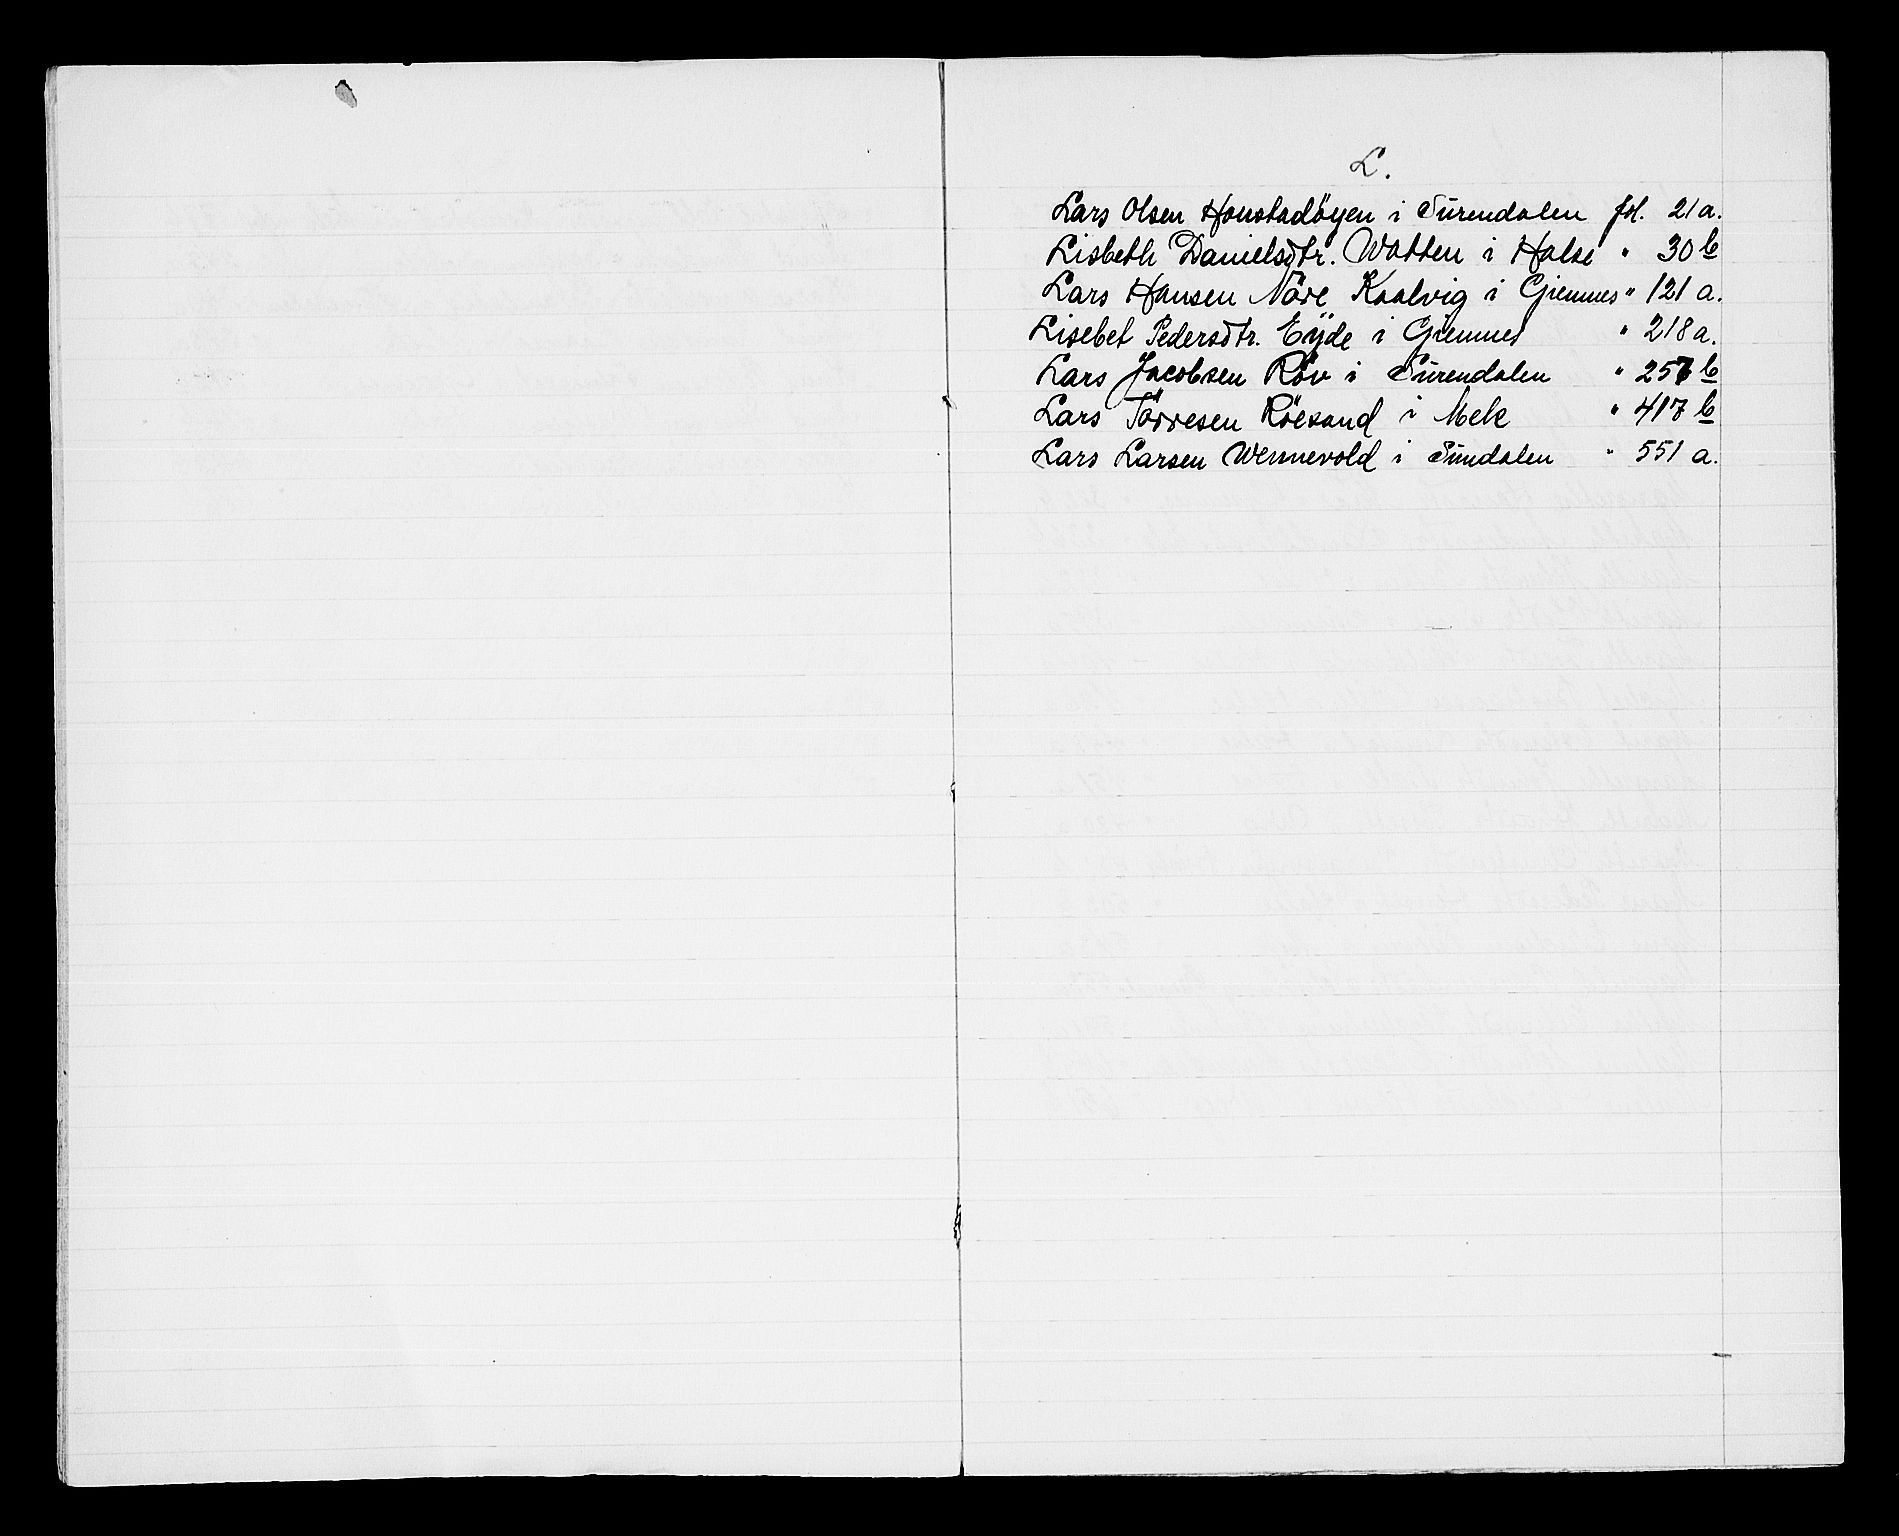 L.
Lars Olsen Honstadöyen i Surendalen fol. 21 a.
Lisbeth Danielsdtr. Watten i Halse " 30 b
Lars Hansen Nöre Kaalvig i Giemnes " 121 a.
Lisebet Pedersdtr. Eÿde i Giemnes " 218 a.
Lars Jacobsen Röv i Surendalen " 257 b
Lars Törresen Röesand i Mele " 417 b
Lars Larsen Wennevold i Sundalen " 551 a.